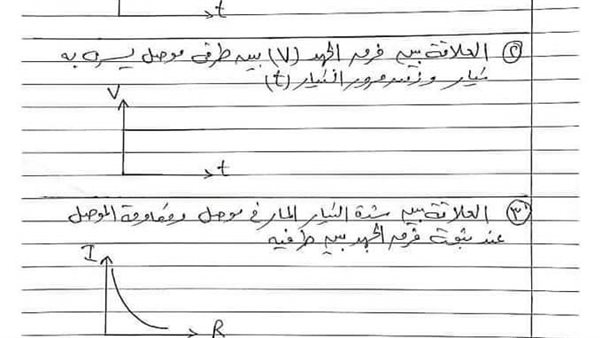 t
② العلاقة بين فرق الجهد (V) بين طرفى موصل يسرى به
تيار وزمن مرور التيار (t)
V
t
③ العلاقة بين شدة التيار المار فى موصل ومقاومة الموصل
عند ثبوت فرق الجهد بين طرفيه
I
R